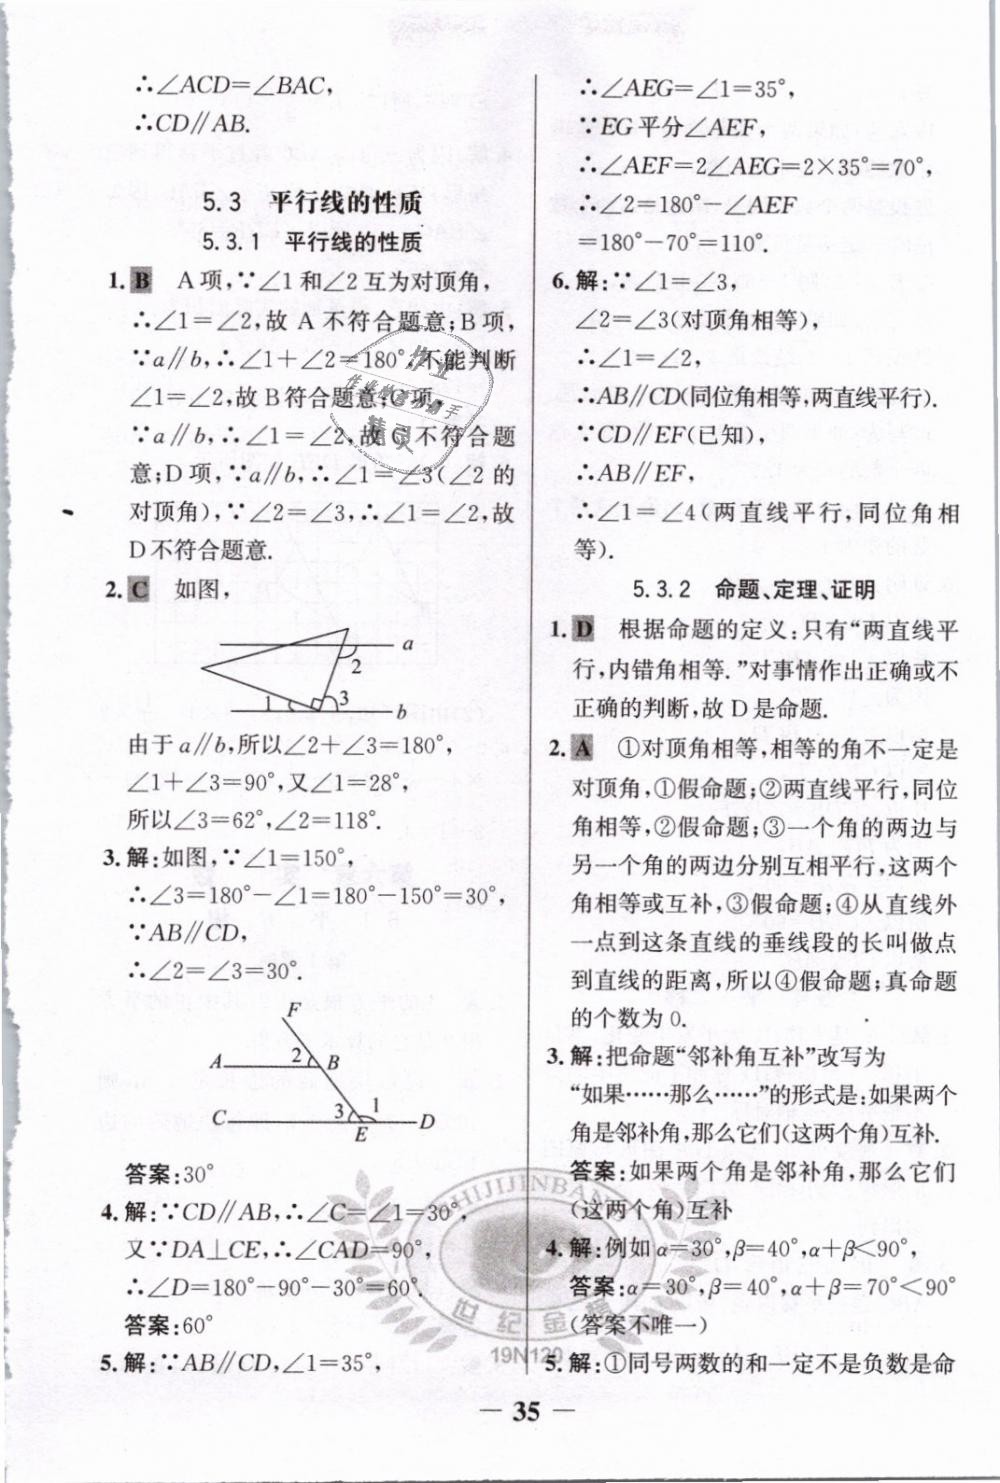 ∴∠ACD=∠BAC,
∴CD∥AB.
5.3 平行线的性质
5.3.1 平行线的性质
1. B A项,∵∠1和∠2互为对顶角,
∴∠1=∠2,故 A 不符合题意;B项,
∵a∥b,∴∠1+∠2=180°,不能判断
∠1=∠2,故B符合题意;C项,
∵a∥b,∴∠1=∠2,故C不符合题
意;D项,∵a∥b,∴∠1=∠3(∠2的
对顶角),∵∠2=∠3,∴∠1=∠2,故
D不符合题意.
2. C 如图,
a
2
1
3
b
由于a∥b,所以∠2+∠3=180°,
∠1+∠3=90°,又∠1=28°,
所以∠3=62°,∠2=118°.
3.解:如图,∵∠1=150°,
∴∠3=180°-∠1=180°-150°=30°,
∵AB∥CD,
∴∠2=∠3=30°.
F
A 2 B
C 3 1 D
E
答案:30°
4.解:∵CD∥AB,∴∠C=∠1=30°,
又∵DA⊥CE,∴∠CAD=90°,
∴∠D=180°-90°-30°=60°.
答案:60°
5.解:∵AB∥CD,∠1=35°,
∴∠AEG=∠1=35°,
∵EG平分∠AEF,
∴∠AEF=2∠AEG=2×35°=70°,
∴∠2=180°-∠AEF
=180°-70°=110°.
6.解:∵∠1=∠3,
∠2=∠3(对顶角相等),
∴∠1=∠2,
∴AB∥CD(同位角相等,两直线平行).
∵CD∥EF(已知),
∴AB∥EF,
∴∠1=∠4(两直线平行,同位角相
等).
5.3.2 命题、定理、证明
1. D 根据命题的定义:只有“两直线平
行,内错角相等.”对事情作出正确或不
正确的判断,故D是命题.
2. A ①对顶角相等,相等的角不一定是
对顶角,①假命题;②两直线平行,同位
角相等,②假命题;③一个角的两边与
另一个角的两边分别互相平行,这两个
角相等或互补,③假命题;④从直线外
一点到这条直线的垂线段的长叫做点
到直线的距离,所以④假命题;真命题
的个数为0.
3.解:把命题“邻补角互补”改写为
“如果……那么……”的形式是:如果两个
角是邻补角,那么它们(这两个角)互补.
答案:如果两个角是邻补角,那么它们
(这两个角)互补
4.解:例如α=30°,β=40°,α+β<90°,
答案:α=30°,β=40°,α+β=70°<90°
(答案不唯一)
5.解:①同号两数的和一定不是负数是命
作业
作业的
精灵
SHIJIJINBANG
世纪金榜
19N120
— 35 —